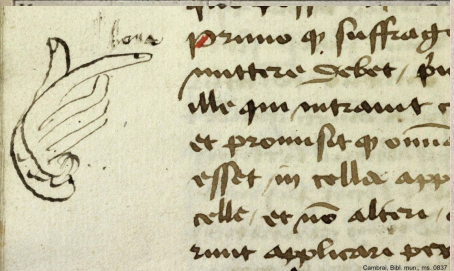 hora
primo qͥ suffrag
mittere debet / p̄u
ille qui intrauit c
et promisit qͥ omn̄
esset / in cella app
celle / et nō alteri /
riūt applicari per
Cambrai, Bibl. mun., ms. 0837